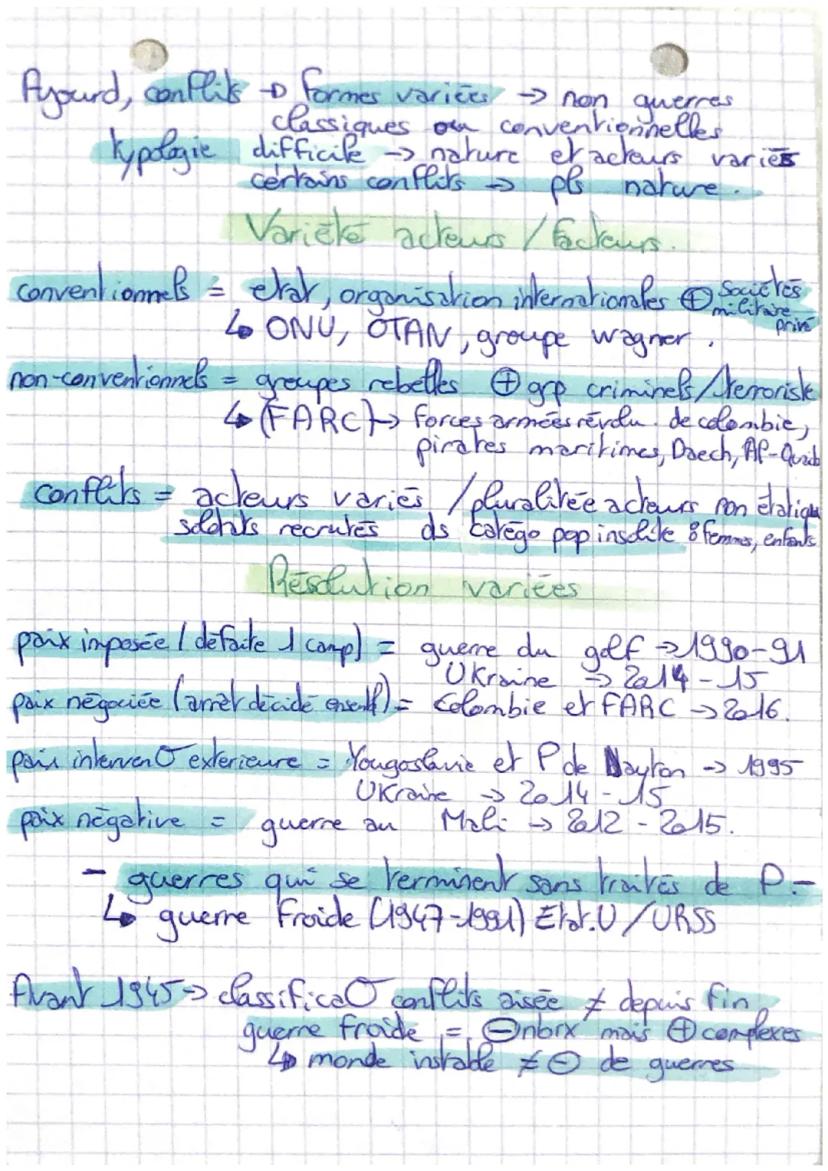 Ajourd, conflits → formes variées → non guerres
classiques ou conventionnelles
typologie difficile → nature et acteurs variés
certains conflits → pls nature.
Variété acteurs / facteurs.
conventionnels = etat, organisation internationales ⊕ sociétés militaire privé
↳ ONU, OTAN, groupe Wagner.
non-conventionnels = groupes rebelles ⊕ grp criminels/terroriste
↳ (FARC) → forces armées révolu. de colombie,
pirates maritimes, Daech, Al-Quaïb
conflits = acteurs variés / pluralitée acteurs non étatiqu
soldats recrutés ds catégo pop insolite : femmes, enfants
Résolution variées
paix imposée (défaite 1 camp) = guerre du golf → 1990-91
Ukraine → 2014-15
paix négociée (arrêt décidé ensmbl) = Colombie et FARC → 2016.
paix intervenO exterieure = Yougoslavie et P de Dayton → 1995
Ukraine → 2014-15
paix négative = guerre au Mali → 2012-2015.
- guerres qui se terminent sans traités de P. -
↳ guerre Froide (1947-1991) Etat.U / URSS
Avant 1945 → classificaO conflits aisée ≠ depuis fin
guerre froide = ⊖ nbrx mais ⊕ complexes
↳ monde instable ≠ ⊖ de guerres